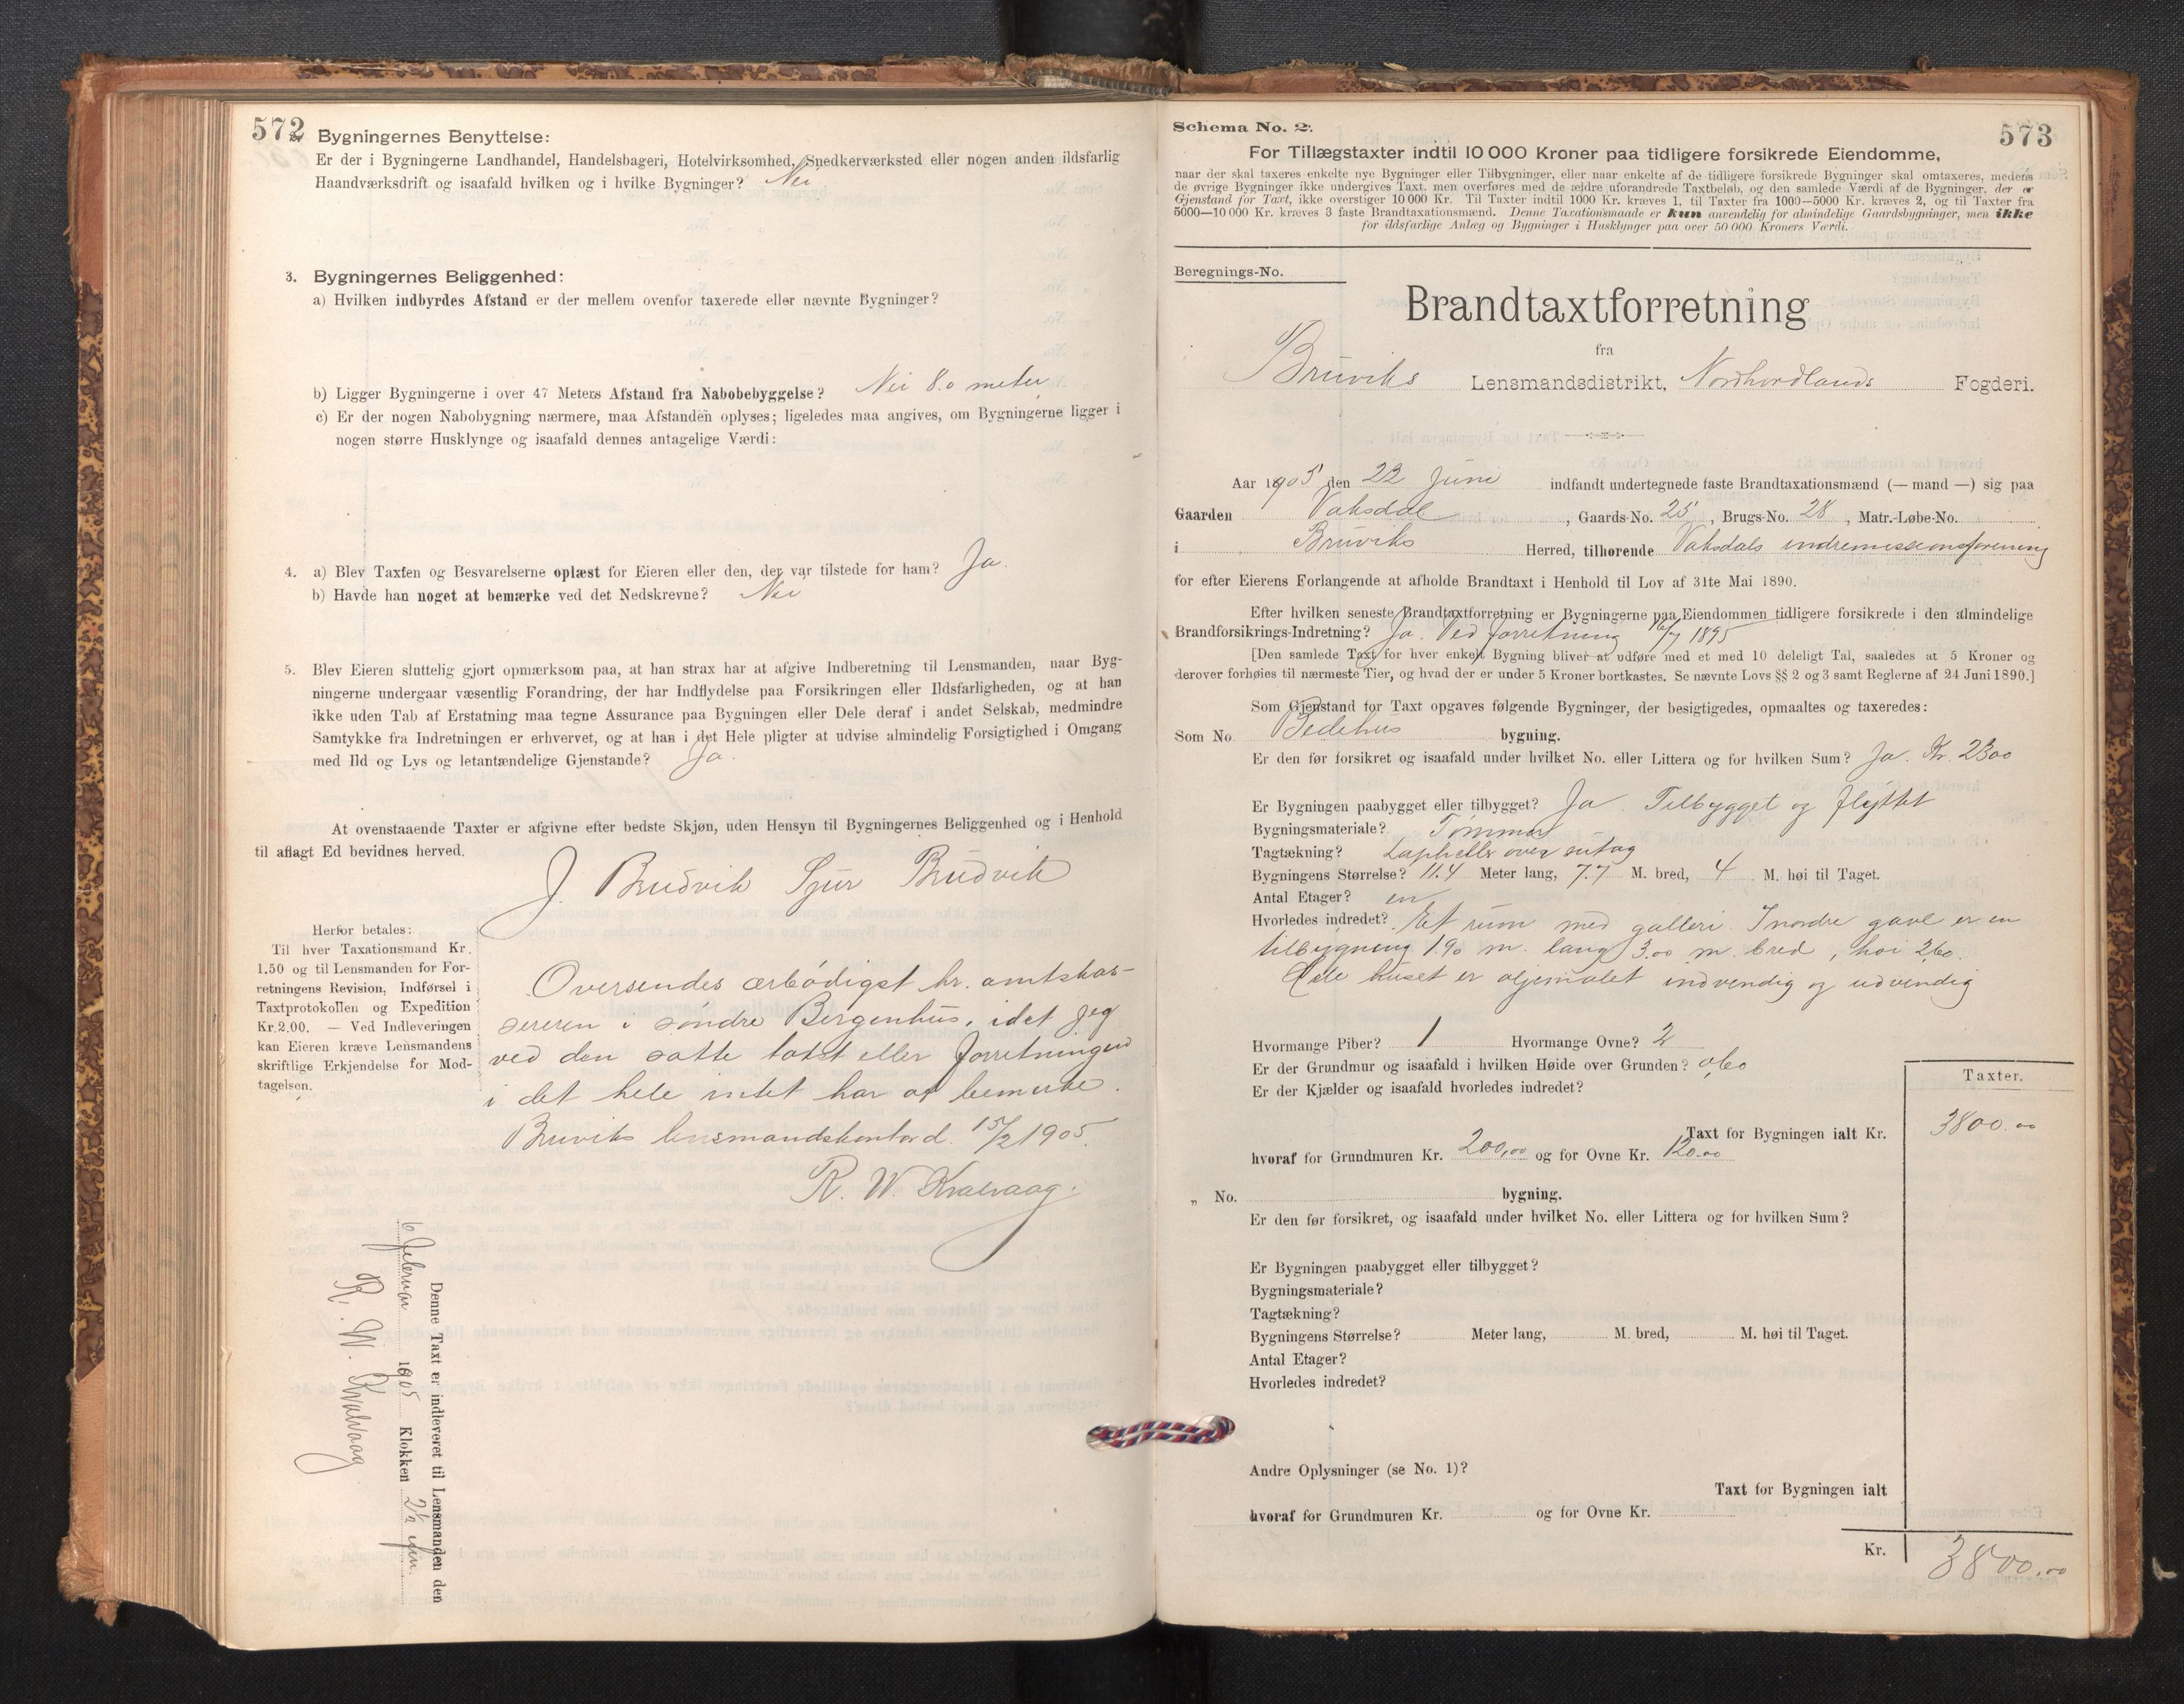 572
Bygningernes Benyttelse:
Er der i Bygningerne Landhandel, Handelsbageri, Hotelvirksomhed, Snedkerværksted eller nogen anden ildsfarlig
Haandværksdrift og isaafald hvilken og i hvilke Bygninger? Nei
3. Bygningernes Beliggenhed:
a) Hvilken indbyrdes Afstand er der mellem ovenfor taxerede eller nævnte Bygninger?
b) Ligger Bygningerne i over 47 Meters Afstand fra Nabobebyggelse? Nei 8.0 meter
c) Er der nogen Nabobygning nærmere, maa Afstanden oplyses; ligeledes maa angives, om Bygningerne ligger i
nogen større Husklynge og isaafald dennes antagelige Værdi:
4. a) Blev Taxten og Besvarelserne oplæst for Eieren eller den, der var tilstede for ham? Ja.
b) Havde han noget at bemærke ved det Nedskrevne? Nei
5. Blev Eieren sluttelig gjort opmærksom paa, at han strax har at afgive Indberetning til Lensmanden, naar Byg-
ningerne undergaar væsentlig Forandring, der har Indflydelse paa Forsikringen eller Ildsfarligheden, og at han
ikke uden Tab af Erstatning maa tegne Assurance paa Bygningen eller Dele deraf i andet Selskab, medmindre
Samtykke fra Indretningen er erhvervet, og at han i det Hele pligter at udvise almindelig Forsigtighed i Omgang
med Ild og Lys og letantændelige Gjenstande? Ja.
At ovenstaaende Taxter er afgivne efter bedste Skjøn, uden Hensyn til Bygningernes Beliggenhed og i Henhold
til aflagt Ed bevidnes herved.
J. Brudvik Sjur Brudvik
Herfor betales:
Til hver Taxationsmand Kr.
1.50 og til Lensmanden for For-
retningens Revision, Indførsel i
Taxtprotokollen og Expedition
Kr. 2.00. — Ved Indleveringen
kan Eieren kræve Lensmandens
skriftlige Erkjendelse for Mod-
tagelsen.
Oversendes ærbødigst hr. amtskas-
sereren i søndre Bergenhus, idet jeg
ved den satte takst eller forretningen
i det hele intet har at bemerke.
Bruviks lensmandskontor d. 15/2 1905.
R. W. Kvalvaag.
Denne Taxt er indleveret til Lensmanden den
6 Februar 1905 Klokken 2½
R. W. Kvalvaag
573
Schema No. 2.
For Tillægstaxter indtil 10 000 Kroner paa tidligere forsikrede Eiendomme,
naar der skal taxeres enkelte nye Bygninger eller Tilbygninger, eller naar enkelte af de tidligere forsikrede Bygninger skal omtaxeres, medens
de øvrige Bygninger ikke undergives Taxt, men overføres med de ældre uforandrede Taxtbeløb, og den samlede Værdi af de Bygninger, der er
Gjenstand for Taxt, ikke overstiger 10 000 Kr. Til Taxter indtil 1000 Kr. kræves 1, til Taxter fra 1000—5000 Kr. kræves 2, og til Taxter fra
5000—10 000 Kr. kræves 3 faste Brandtaxationsmænd. Denne Taxationsmaade er kun anvendelig for almindelige Gaardsbygninger, men ikke
for ildsfarlige Anlæg og Bygninger i Husklynger paa over 50 000 Kroners Værdi.
Beregnings-No.
Brandtaxtforretning
fra
Bruviks Lensmandsdistrikt, Nordhordlands Fogderi.
Aar 1905 den 22 Juni indfandt undertegnede faste Brandtaxationsmænd (— mand —) sig paa
Gaarden Vaksdal, Gaards-No. 25, Brugs-No. 28, Matr.-Løbe-No.
i Bruviks Herred, tilhørende Vaksdals indremissionsforening
for efter Eierens Forlangende at afholde Brandtaxt i Henhold til Lov af 31te Mai 1890.
Efter hvilken seneste Brandtaxtforretning er Bygningerne paa Eiendommen tidligere forsikrede i den almindelige
Brandforsikrings-Indretning? Ja. Ved forretning 16/7 1895
[Den samlede Taxt for hver enkelt Bygning bliver at udføre med et med 10 deleligt Tal, saaledes at 5 Kroner og
derover forhøies til nærmeste Tier, og hvad der er under 5 Kroner bortkastes. Se nævnte Lovs §§ 2 og 3 samt Reglerne af 24 Juni 1890.]
Som Gjenstand for Taxt opgaves følgende Bygninger, der besigtigedes, opmaaltes og taxeredes:
Som No. Bedehus bygning.
Er den før forsikret og isaafald under hvilket No. eller Littera og for hvilken Sum? Ja. Kr. 2300
Er Bygningen paabygget eller tilbygget? Ja. Tilbygget og flyttet
Bygningsmateriale? Tømmer
Tagtækning? Lapheller over sutag
Bygningens Størrelse? 11.4 Meter lang, 7.7 M. bred, 4 M. høi til Taget.
Antal Etager? en
Hvorledes indredet? Et rum med galleri. I nordre gavl er en
tilbygning 1.90 m. lang 3.00 m. bred, høi 2.60.
Hele huset er oljemalet indvendig og udvendig
Hvormange Piber? 1 Hvormange Ovne? 2
Er der Grundmur og isaafald i hvilken Høide over Grunden? 0,60
Er der Kjælder og isaafald hvorledes indredet?
Taxter.
Taxt for Bygningen ialt Kr. 3800.00
hvoraf for Grundmuren Kr. 200,00 og for Ovne Kr. 120.00
„ No. bygning.
Er den før forsikret, og isaafald under hvilket No. eller Littera og for hvilken Sum?
Er Bygningen paabygget eller tilbygget?
Bygningsmateriale?
Tagtækning?
Bygningens Størrelse? Meter lang, M. bred, M. høi til Taget.
Antal Etager?
Hvorledes indredet?
Andre Oplysninger (se No. 1)?
Taxt for Bygningen ialt
hvoraf for Grundmuren Kr. og for Ovne Kr.
Kr. 3800.00